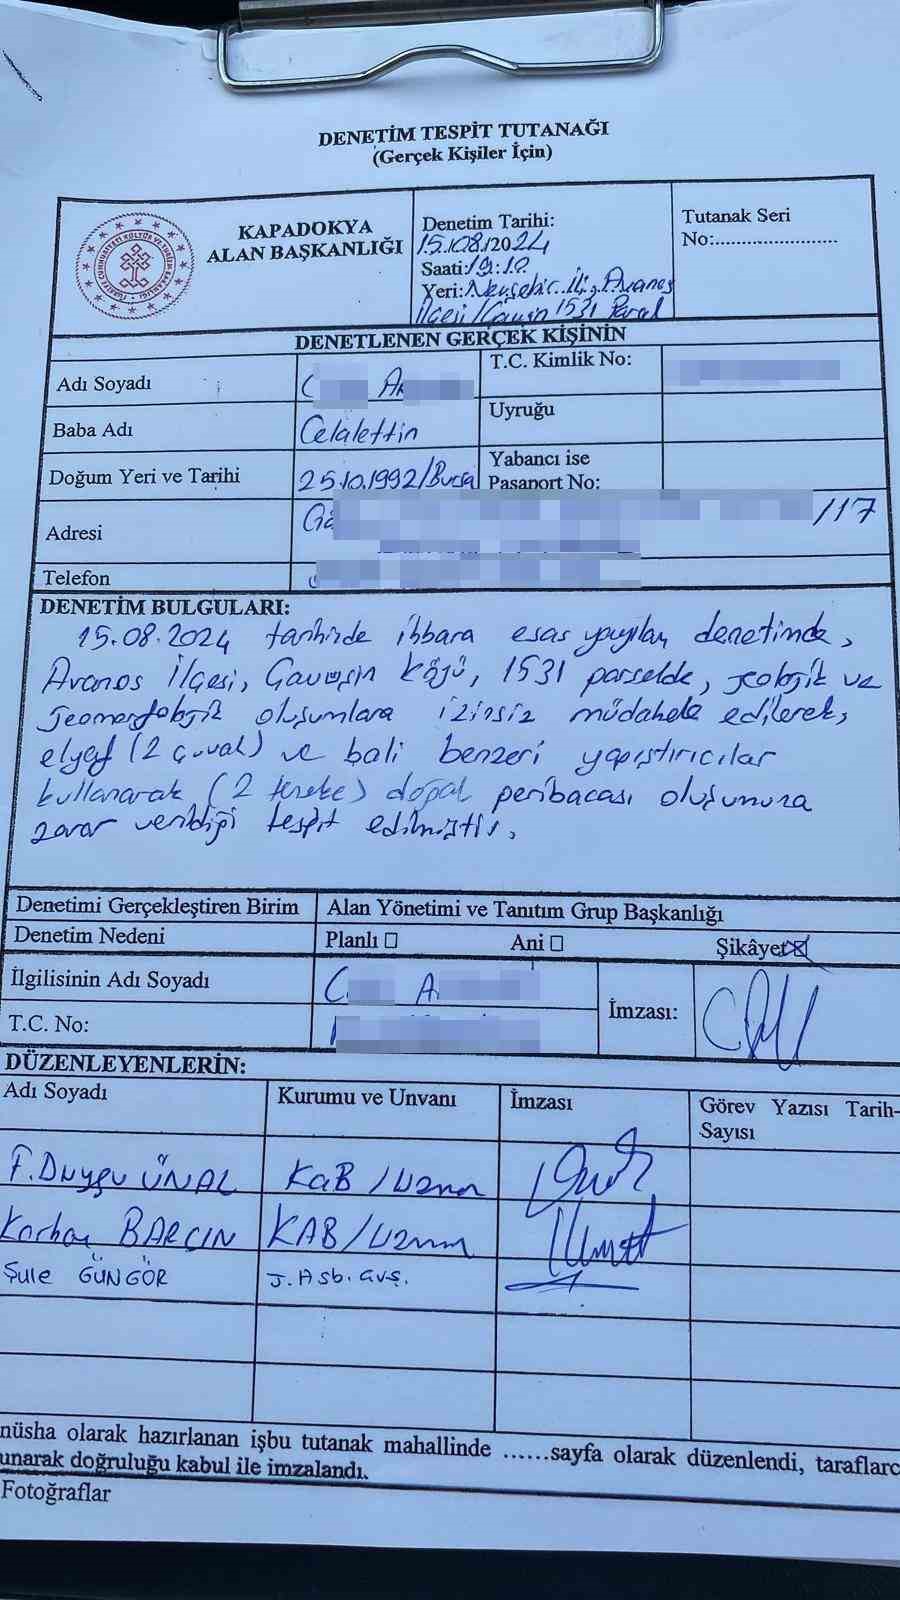 DENETİM TESPİT TUTANAĞI
(Gerçek Kişiler İçin)
KAPADOKYA
ALAN BAŞKANLIĞI
Denetim Tarihi:
15.08.2024
Saati:19:10
Yeri:Nevşehir İli, Avanos
İlçesi/Çavuşin 1531 Parsel
Tutanak Seri
No:........................
TÜRKİYE CUMHURİYETİ KÜLTÜR VE TURİZM BAKANLIĞI
DENETLENEN GERÇEK KİŞİNİN
Adı Soyadı C A
T.C. Kimlik No:
Baba Adı Celalettin
Uyruğu
Doğum Yeri ve Tarihi 25.10.1992/Bursa
Yabancı ise
Pasaport No:
Adresi /17
Telefon
DENETİM BULGULARI:
15.08.2024 tarihinde ihbara esas yapılan denetimde,
Avanos İlçesi, Çavuşin Köyü, 1531 parselde, jeolojik ve
jeomorfolojik oluşumlara izinsiz müdahele edilerek,
elyaf (2 çuval) ve bali benzeri yapıştırıcılar
kullanarak (2 teneke) doğal peribacası oluşumuna
zarar verildiği tespit edilmiştir.
Denetimi Gerçekleştiren Birim Alan Yönetimi ve Tanıtım Grup Başkanlığı
Denetim Nedeni Planlı Ani Şikâyet
İlgilisinin Adı Soyadı C A
T.C. No:
İmzası:
DÜZENLEYENLERİN:
Adı Soyadı Kurumu ve Unvanı İmzası Görev Yazısı Tarih-
Sayısı
F. Duygu ÜNAL KAB/Uzman
BARÇIN KAB/Uzman
Şule GÜNGÖR J. Asb. Çvş.
nüsha olarak hazırlanan işbu tutanak mahallinde ......sayfa olarak düzenlendi, taraflarc
unarak doğruluğu kabul ile imzalandı.
Fotoğraflar